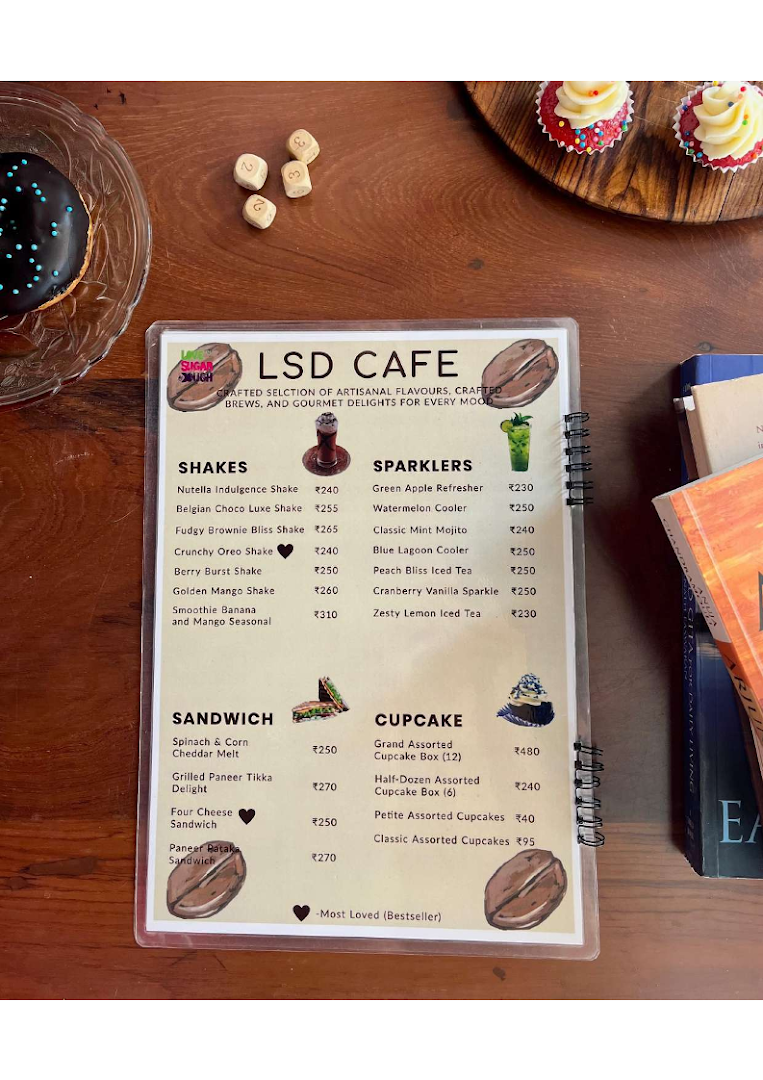 3
2
3
2
LOVE
SUGAR
& DOUGH
LSD CAFE
CRAFTED SELCTION OF ARTISANAL FLAVOURS, CRAFTED
BREWS, AND GOURMET DELIGHTS FOR EVERY MOOD
SHAKES
Nutella Indulgence Shake ₹240
Belgian Choco Luxe Shake ₹255
Fudgy Brownie Bliss Shake ₹265
Crunchy Oreo Shake ₹240
Berry Burst Shake ₹250
Golden Mango Shake ₹260
Smoothie Banana
and Mango Seasonal ₹310
SPARKLERS
Green Apple Refresher ₹230
Watermelon Cooler ₹250
Classic Mint Mojito ₹240
Blue Lagoon Cooler ₹250
Peach Bliss Iced Tea ₹250
Cranberry Vanilla Sparkle ₹250
Zesty Lemon Iced Tea ₹230
SANDWICH
Spinach & Corn
Cheddar Melt ₹250
Grilled Paneer Tikka
Delight ₹270
Four Cheese
Sandwich ₹250
Paneer Pataka
Sandwich ₹270
CUPCAKE
Grand Assorted
Cupcake Box (12) ₹480
Half-Dozen Assorted
Cupcake Box (6) ₹240
Petite Assorted Cupcakes ₹40
Classic Assorted Cupcakes ₹95
-Most Loved (Bestseller)
DAILY LIVING
EA